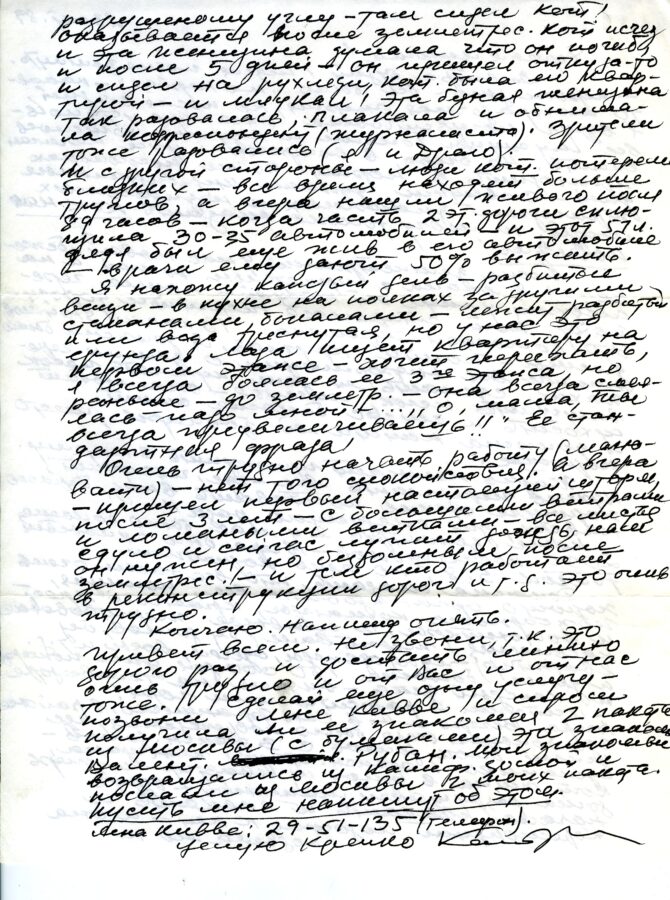 разрушеному углу – там сидел кот!
оказывается после землетрес. кот исчез
и эта женщина думала что он погиб
и после 5 дней – он пришел откуда-то
и сидел на рухляди, кот. была его квар-
тирой – и мяукал! Эта бедная женщина
так радовалась, плакала и обнима-
ла корреспондент (журналиста). Зрители
тоже радовались (я и Драго).
И с другой стороны – люди кот. потеряли
близких – все время находят больше
трупов, а вчера нашли живого после
89 часов – когда часть 2 эт. дороги сплю-
щила 30-35 автомобилей и этот 57 л.
дядя был еще жив в его автомобиле
– врачи ему дают 50% выжить.
Я нахожу каждый день – разбитые
вещи – в кухне на полках за другими
стаканами, бокалами – лежит разбитый
или ваза треснутая, но у нас это
ерунда. Лада ищет квартиру на
первом этаже – хочет переехать,
я всегда боялась ее 3го этажа, но
раньше – до землетр. – она всегда смея-
лась надо мной – ...,, О, мама, ты
всегда преувеличиваешь!!" Ее стан-
дартная фраза!
Очень трудно начать работу (малю-
вати) – нет того спокойствия. а вчера
– пришел первый настоящий шторм,
после 3 лет – с большими ветрами
и ломаными ветками – все листья
сдуло и сейчас лупит дождь, нам
он нужен, но бездомным после
землетрес. – и тем кто работает
в реконструкции дорог и т.д. это очень
трудно.
Кончаю. Напишу опять.
Привет всем. Не звони, т.к. это
дорого раз, и достать линию
очень трудно и от Вас и от нас
тоже. Сделай еще одну услугу –
позвони Лене Кивве и спроси
получила ли ее знакомая 2 пакета
из Москвы (с бумагами) эта знакомая
Валент. Рубан. Мои знакомые
возвращались из домой и
послали из Москвы 2 моих пакета.
пусть мне напишут об этом.
Лена Кивве: 29-51-135 (телефон).
целую крепко